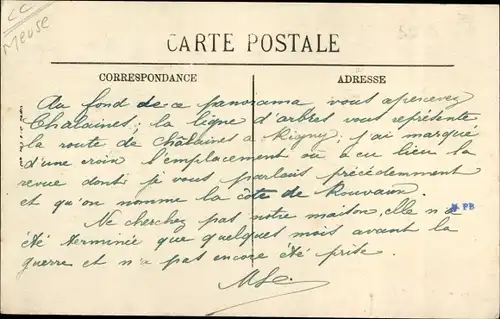 CC
Meuse
CARTE POSTALE
CORRESPONDANCE
ADRESSE
Au fond de ce panorama vous apercevez
Chalaines; la ligne d'arbres vous représente
la route de Châlaines à Rigny; j'ai marqué
d'une croix l'emplacement où a eu lieu la
revue dont je vous parlais précédemment
et qu'on nomme la côte de Rouvain.
Ne cherchez pas notre maison, elle n'a
PB
été terminée que quelques mois avant la
guerre et n'a pas encore été prise.